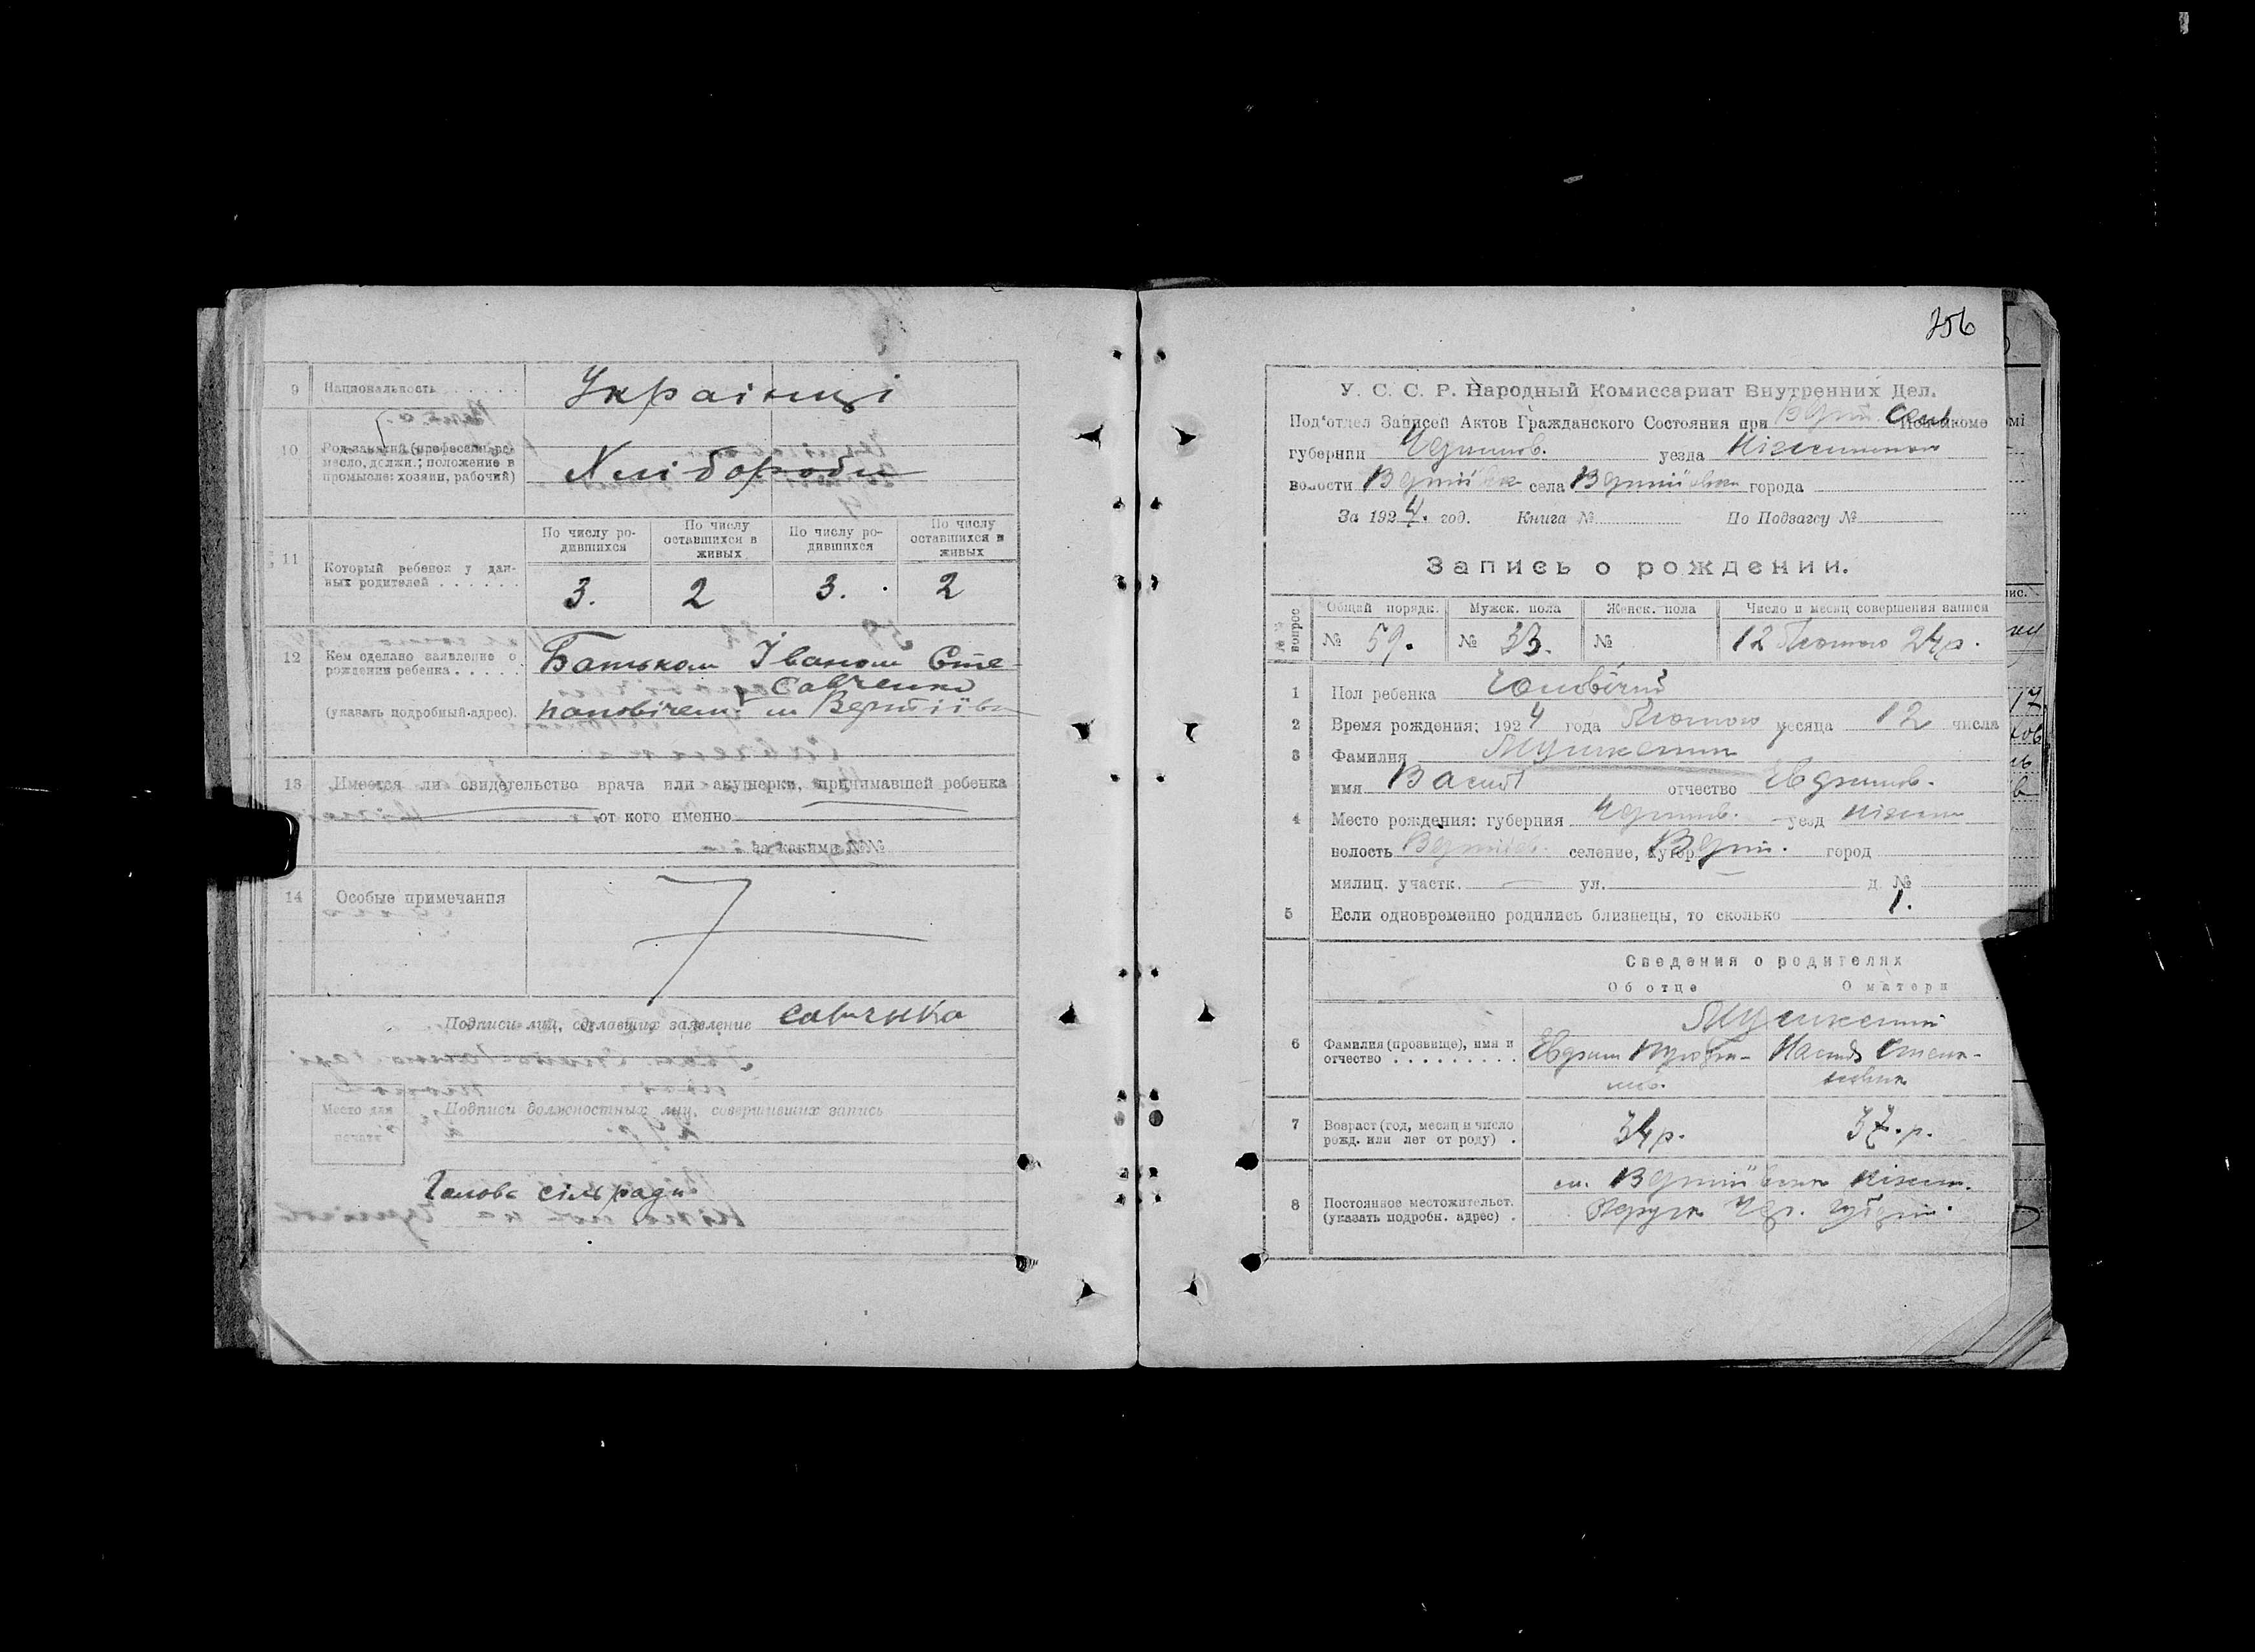 9 Национальность . . . . . . Українці
10 Род занятий (профессия, ре-
месло, должн.; положение в
промысле: хозяин, рабочий)
Хлібороби
По числу ро-
дившихся
По числу
оставшихся в
живых
По числу ро-
дившихся
По числу
оставшихся в
живых
11 Который ребенок у дан-
ных родителей . . . . . .
3. 2 3. 2
12 Кем сделано заявление о
рождении ребенка . . . . .
(указать подробный адрес).
Батьком Іваном Сте-
Савченко
пановичем м Вертіївка
13 Имеется ли свидетельство врача или акушерки, принимавшей ребенка
от кого именно
за какими №№
14 Особые примечания
Подписи лиц, сделавших заявление Савчнко
Место для
печати
Подписи должностных лиц, совершивших запись
Голова сільради
356
У. С. С. Р. Народный Комиссариат Внутренних Дел.
Под'отдел Записей Актов Гражданского Состояния при Верт. Сель Исполкоме
губернии Черниг. уезда Ніжинського
волости Вертіївск села Вертіївки города
За 1924. год. Книга № По Подзагсу №
Запись о рождении.
№№ вопрос
Общий порядк. Мужск. пола Женск. пола Число и месяц совершения записи
№ 59. № 33. № 12 Лютого 24р.
1 Пол ребенка Чоловічий
2 Время рождения: 1924 года Лютого месяца 12 числа
3 Фамилия
имя Василь отчество
4 Место рождения: губерния Черниг. уезд Ніжин
волость Вертіїв. селение, хутор Верт. город
милиц. участк. ул. д. №
5 Если одновременно родились близнецы, то сколько 1.
Сведения о родителях
Об отце О матери
6 Фамилия (прозвище), имя и
отчество . . . . . . . . .
7 Возраст (год, месяц и число
рожд. или лет от роду) .
34р. 37.р.
8 Постоянное местожительст.
(указать подробн. адрес) .
м. Вертіївка Ніжин.
Округи Чер. Губерн.